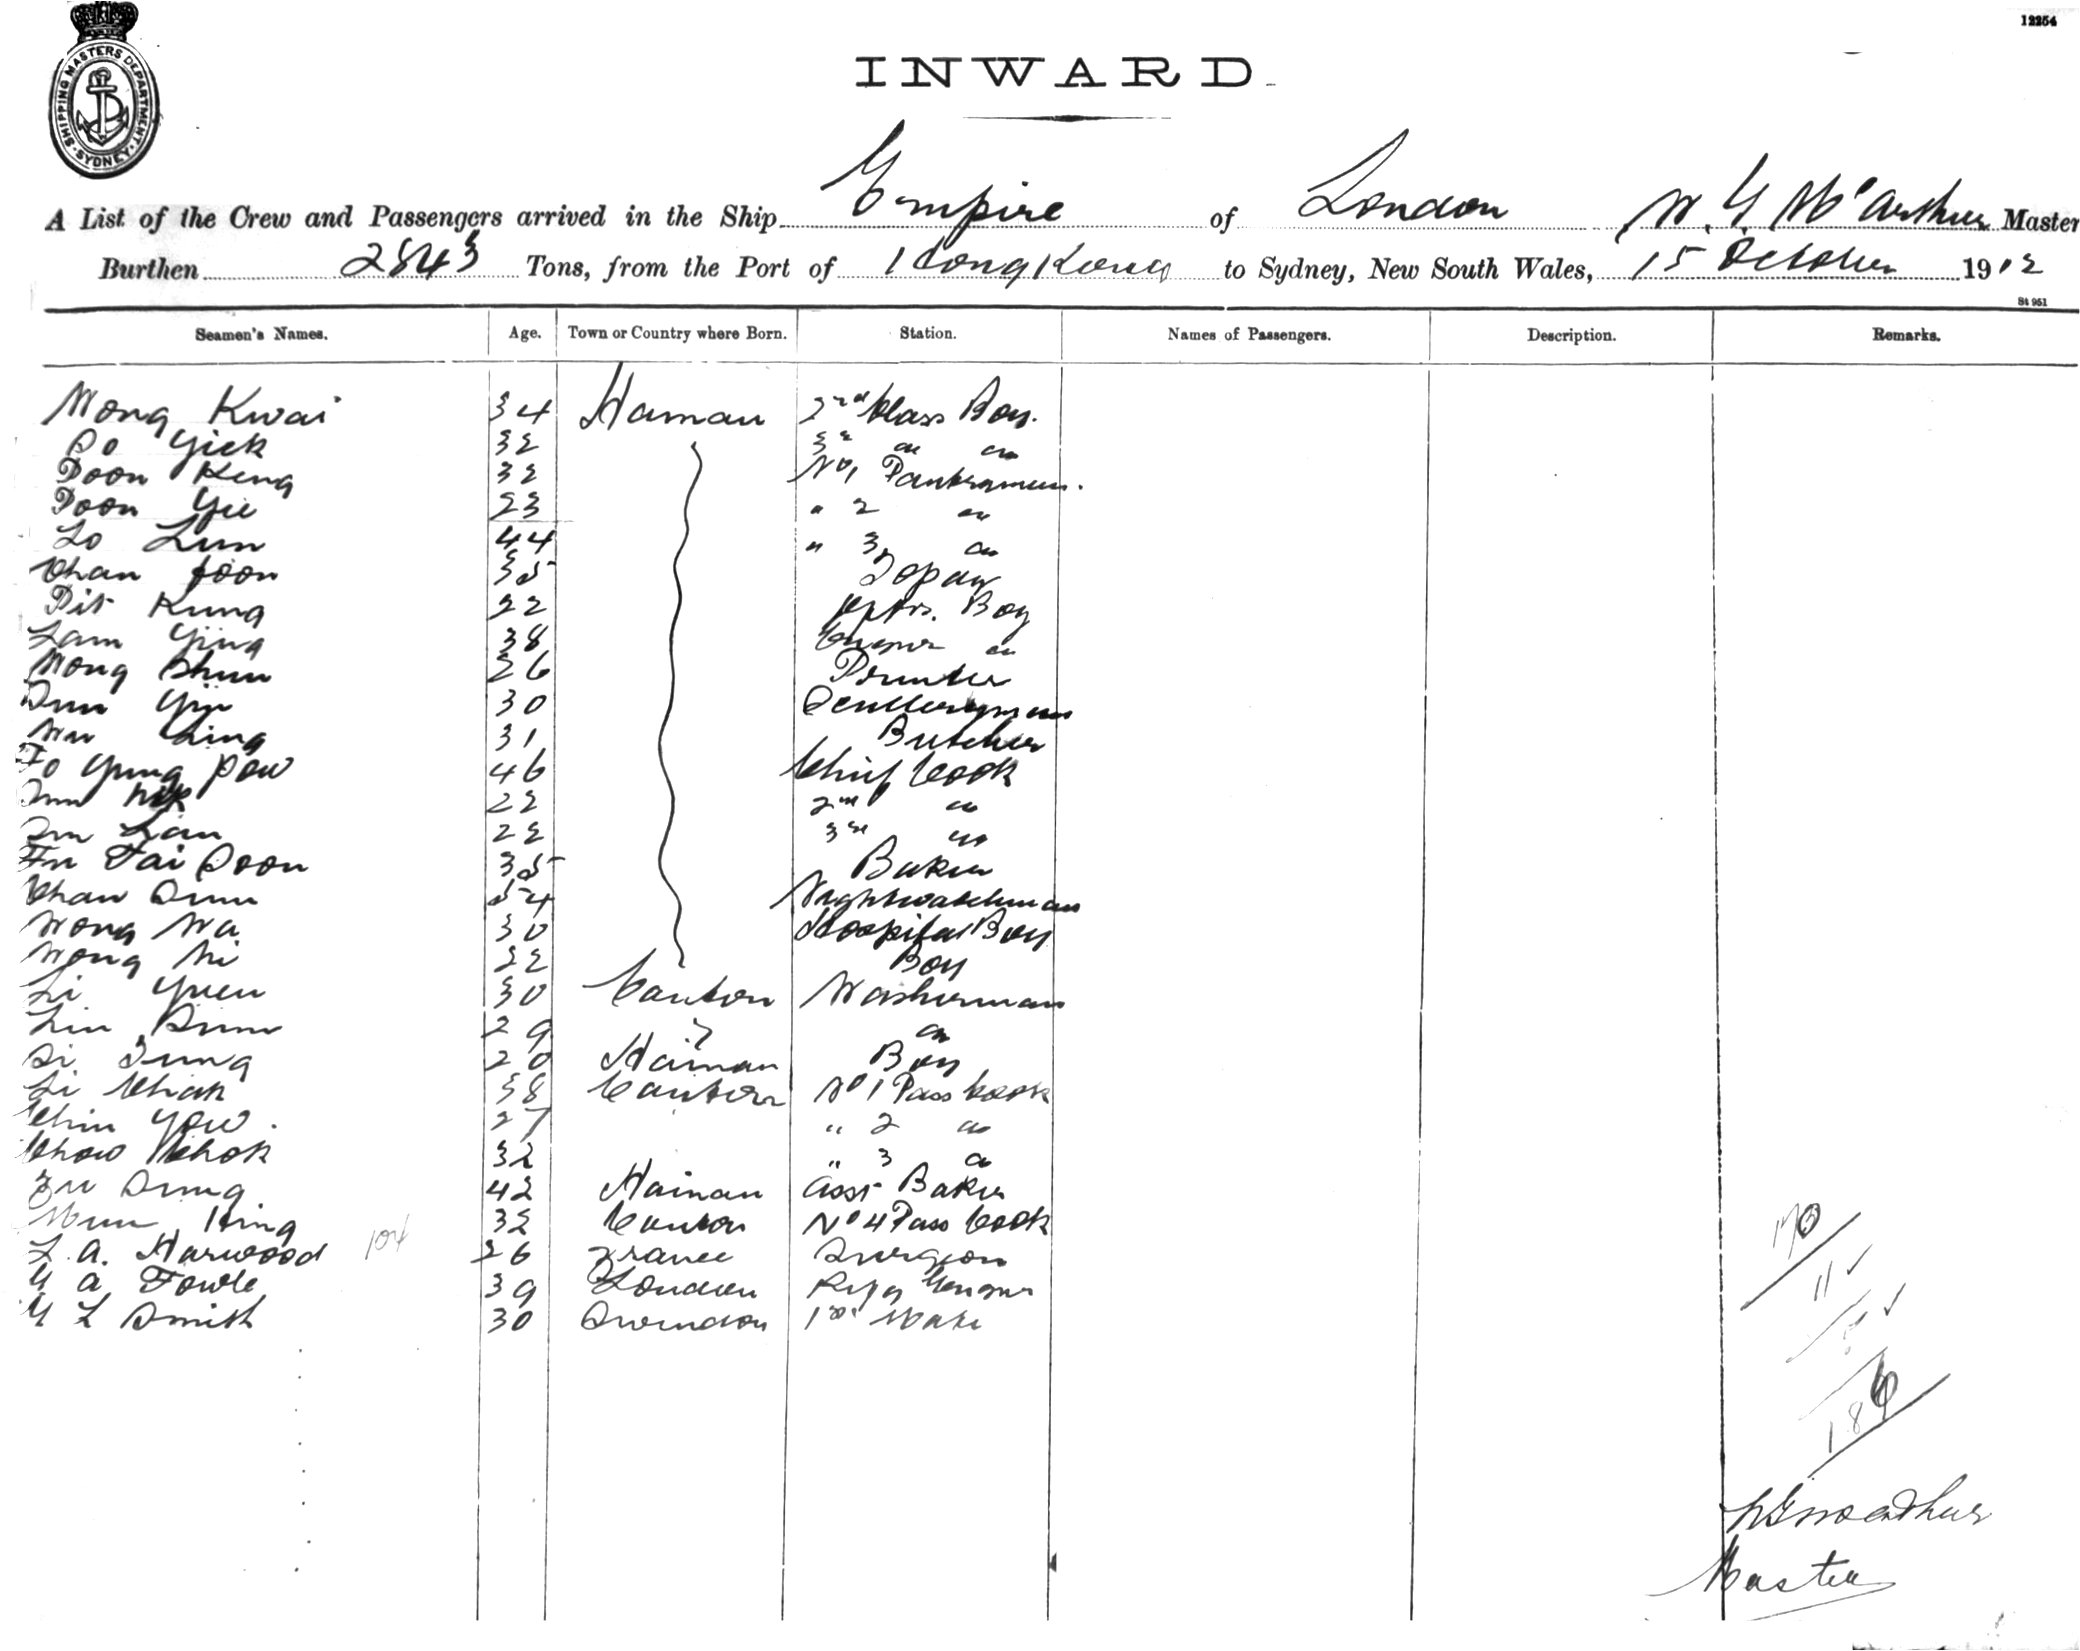 12254
SHIPPING MASTERS DEPARTMENT SYDNEY
INWARD
A List of the Crew and Passengers arrived in the Ship Empire of London W. G. McArthur Master
Burthen 2843 Tons, from the Port of Hong Kong to Sydney, New South Wales, 15 October 1912
St 951
Seamen's Names. Age. Town or Country where Born. Station. Names of Passengers. Description. Remarks.
Wong Kwai 34 Hainan 2nd Class Boy.
So Yick 32 3rd " "
Doon Keng 32 No 1 Pantrymen.
Doon Yee 23 " 2 "
Lo Lun 44 " 3 "
Chan Foon 35 Topaz
Pit Kung 22 Boy
Lam Ying 38 "
Wong Shun 26 Printer
Sun Yip 30 Scullerymen
Ling 31 Butcher
Fo Yung Pow 46 Chief Cook
22 2nd "
Lan 22 3rd "
Fu Tai Soon 35 Baker
Chan Sun 54 Nightwatchman
Wong Wa 30 Hospital Boy
Wong Ni 22 Boy
Li Yuen 30 Canton Washerman
Liu Sum 29 "
Si Sung 20 Hainan Boy
Li Chak 38 Canton No 1 Pass Cook
Chin Yow. 27 " 2 "
Chow Chok 32 " 3 "
Fu Sung 42 Hainan Asst Baker
Mun King 32 Canton No 4 Pass Cook
L. A. Harwood 104 26 France Surgeon
G A Fowle 39 London Rfg Engnr
G L Smith 30 Swindon 1st Mate
170
11 ✓
186
W G McArthur
Master